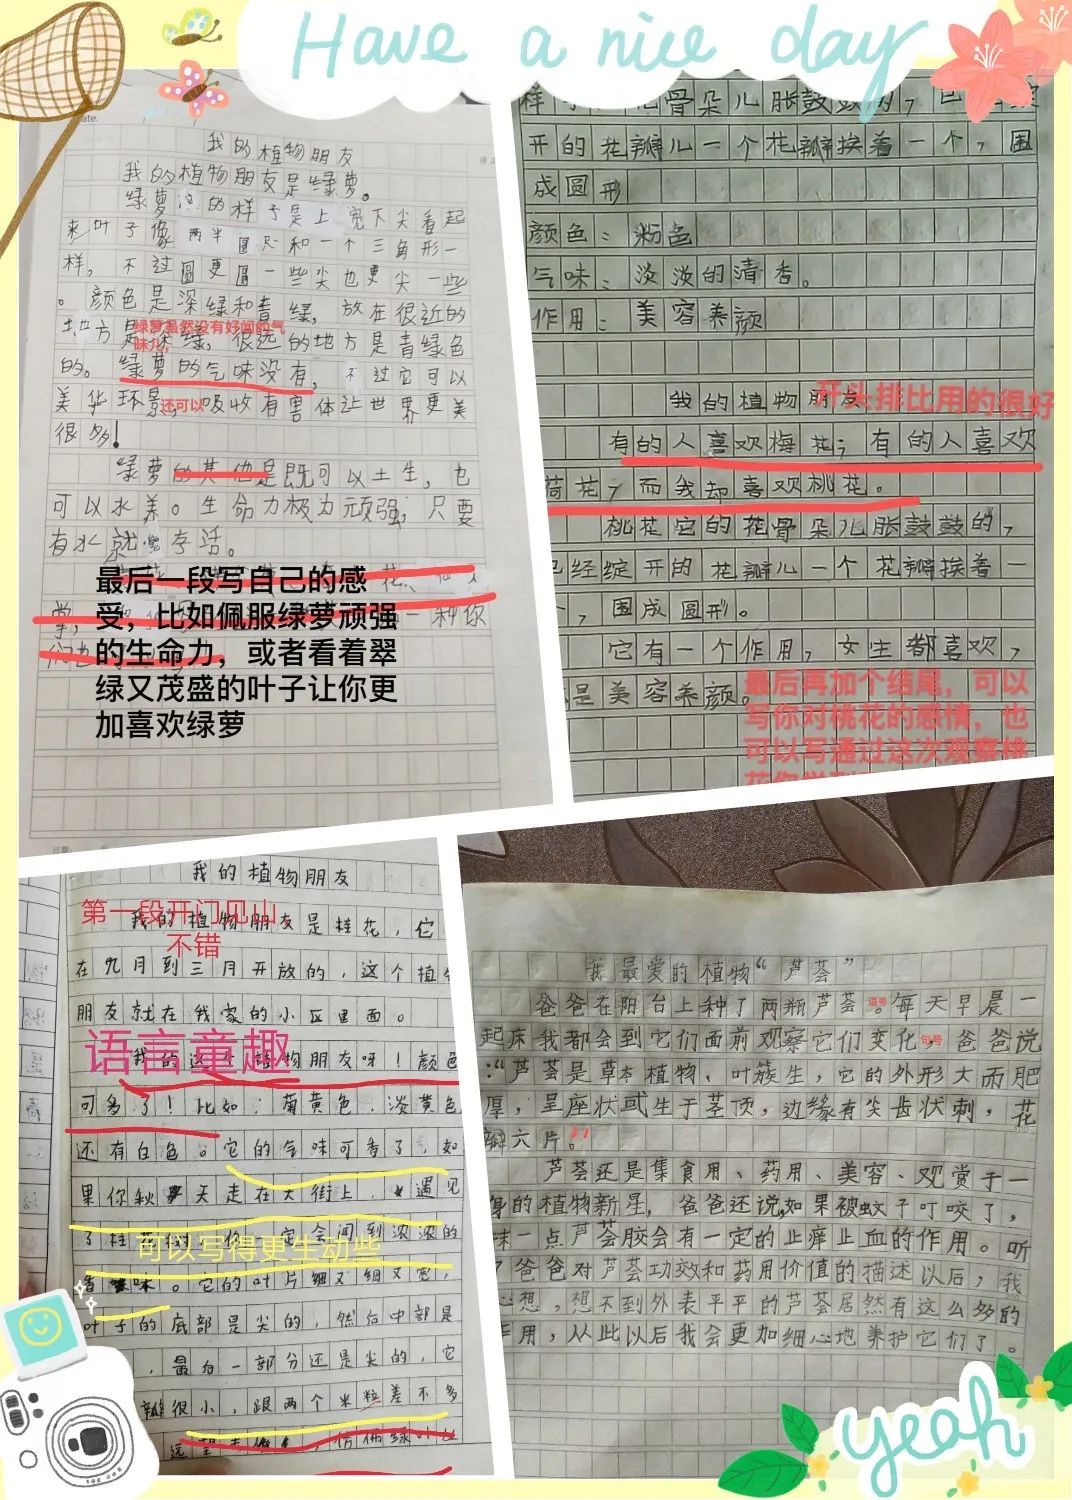 Have a nice day
ate.
我的植物朋友
我的植物朋友是绿萝。
绿萝的样子是上宽下尖看起
来叶子像两半圆尺和一个三角形一
样，不过圆更圆一些尖也更尖一些
。颜色是深绿和青绿，放在很近的
绿萝虽然没有好闻的气
味儿，
地方是深绿，很远的地方是青绿色
的。绿萝的气味没有，不过它可以
还可以
美华环景，吸收有害体让世界更美
很多！
绿萝的其他是既可以土生，也
可以水养。生命力极为顽强，只要
有水就能存活。
最后一段写自己的感
受，比如佩服绿萝顽强
的生命力，或者看着翠
绿又茂盛的叶子让你更
加喜欢绿萝
花骨朵儿胀鼓鼓的，
开的花瓣儿一个花瓣挨着一个，围
成圆形
颜色：粉色
气味：淡淡的清香。
作用：美容养颜
开头排比用的很好
我的植物朋友
有的人喜欢梅花；有的人喜欢
荷花；而我却喜欢桃花。
桃花它的花骨朵儿胀鼓鼓的，
已经绽开的花瓣儿一个花瓣挨着一
，围成圆形。
它有一个作用，女生都喜欢，
是美容养颜。
最后再加个结尾，可以
写你对桃花的感情，也
可以写通过这次观察桃
我的植物朋友
第一段开门见山，
不错
我的植物朋友是桂花，它
在九月到三月开放的，这个植物
朋友就在我家的小区里面。
语言童趣
我的这个植物朋友呀！颜色
可多了！比如：菊黄色，淡黄色
还有白色。它的气味可香了，如
果你秋天走在大街上，遇见
了桂花树，你一定会闻到浓浓的
可以写得更生动些
香味。它的叶片细又细又宽，
叶子的底部是尖的，然后中部是
，最后一部分还是尖的，它
瓣很小，跟两个米粒差不多
我最爱的植物“芦荟”
爸爸在阳台上种了两瓶芦荟。逗号每天早晨一
起床我都会到它们面前观察它们变化，句号爸爸说
：“芦荟是草本植物、叶簇生，它的外形大而肥
厚，呈座状或生于茎顶，边缘有尖齿状刺，花
瓣六片。”
芦荟还是集食用、药用、美容、观赏于一
身的植物新星，爸爸还说如果被蚊子叮咬了，
抹一点芦荟胶会有一定的止痒止血的作用。听
了爸爸对芦荟功效和药用价值的描述以后，我
心想，想不到外表平平的芦荟居然有这么多的
作用，从此以后我会更加细心地养护它们了。
yeah